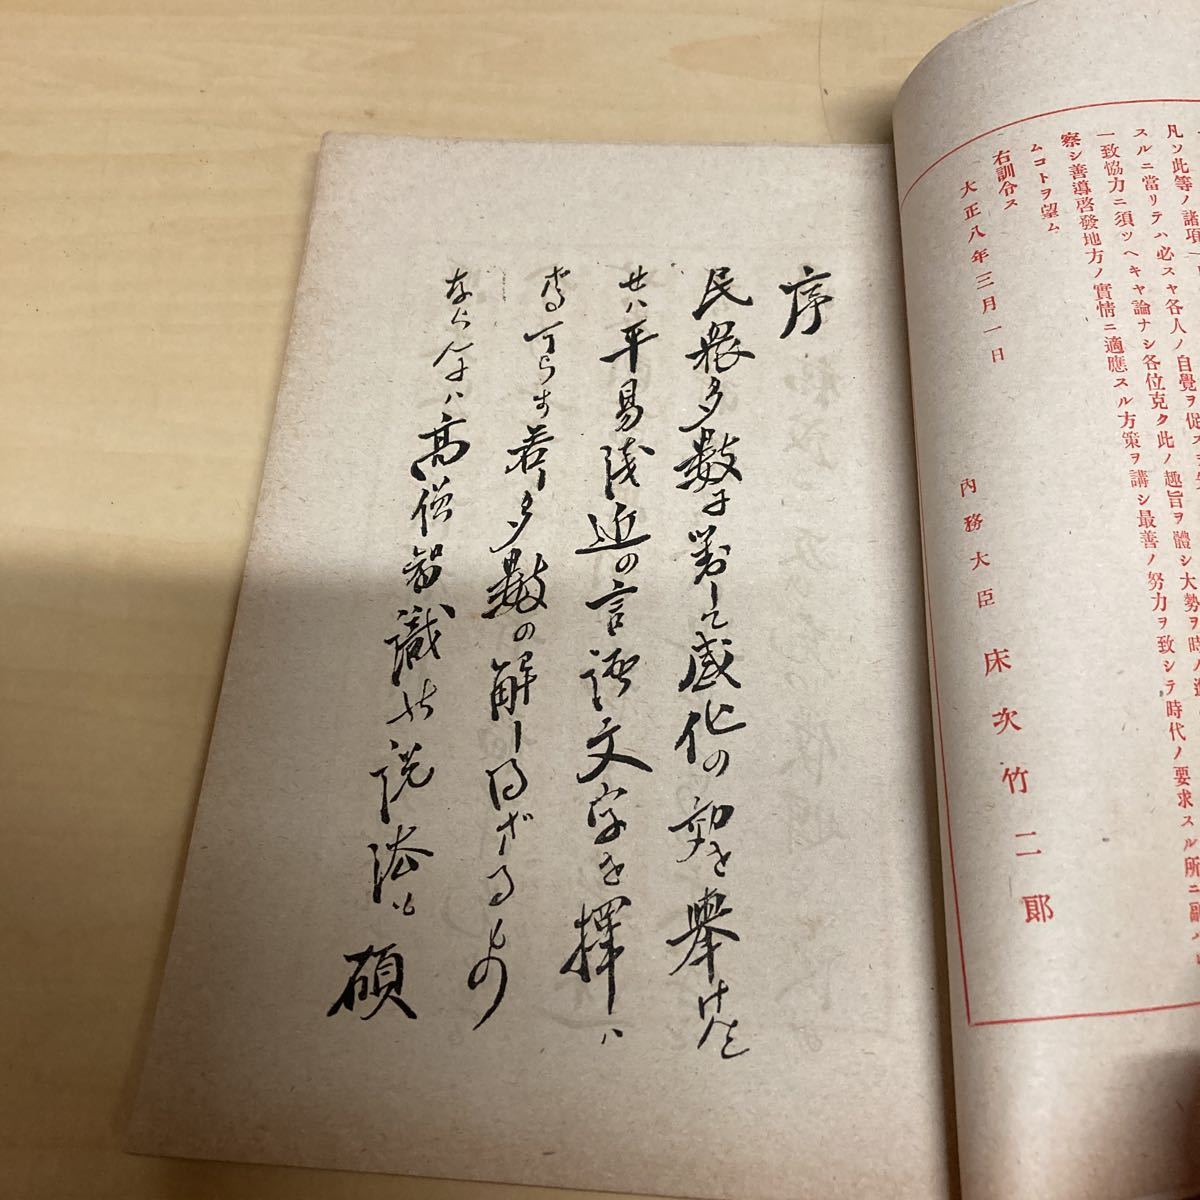 凡ソ此等ノ諸項一
スルニ當リテハ必スヤ各人ノ自覺ヲ促ス
一致協力ニ須ツヘキヤ論ナシ各位克ク此ノ趣旨ヲ體シ大勢ヲ時
察シ善導啓發地方ノ實情ニ適應スル方策ヲ講シ最善ノ努力ヲ致シテ時代ノ要求スル所ニ副
ムコトヲ望ム
右訓令ス
大正八年三月一日
內務大臣 床次竹二郞
序
民衆多數に對して感化の効を擧けんと
せハ平易浅近の言語文字を擇ハ
さる可らす若し多數の解し得ざるもの
ならんにハ高僧智識の説法も碩